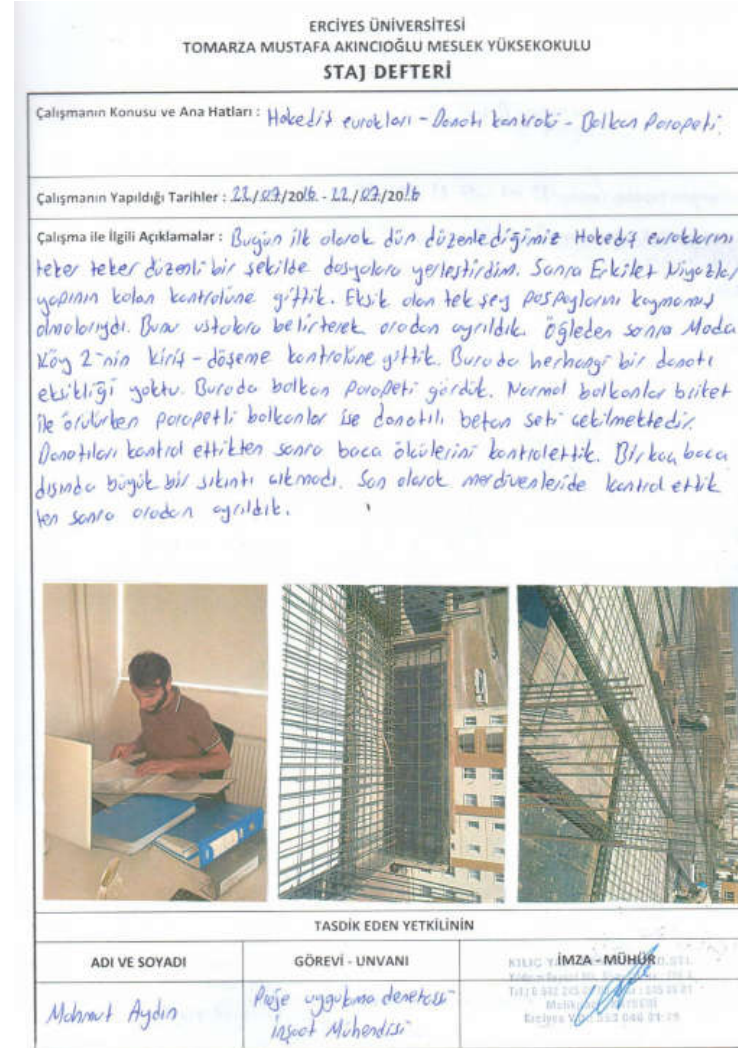 ERCİYES ÜNİVERSİTESİ
TOMARZA MUSTAFA AKINCIOĞLU MESLEK YÜKSEKOKULU
STAJ DEFTERİ
Çalışmanın Konusu ve Ana Hatları : Hakediş evrakları - Donatı kontrolü - Balkon Parapeti
Çalışmanın Yapıldığı Tarihler : 22/07/2016 - 22/07/2016
Çalışma ile İlgili Açıklamalar : Bugün ilk olarak dün düzenlediğimiz Hakediş evraklarını
teker teker düzenli bir şekilde dosyalara yerleştirdim. Sonra Erkilet Niyazlar
yapının kolon kontrolüne gittik. Eksik olan tek şey paspaylarını koymamış
olmalarıydı. Bunu ustalara belirterek oradan ayrıldık. Öğleden sonra Moda
Köy 2-nin kiriş - döşeme kontrolüne gittik. Burada herhangi bir donatı
eksikliği yoktu. Burada balkon parapeti gördük. Normal balkonlar briket
ile örülürken parapetli balkonlar ise donatılı beton seti çekilmektedir.
Donatıları kontrol ettikten sonra baca ölçülerini kontrol ettik. Birkaç baca
dışında büyük bir sıkıntı çıkmadı. Son olarak merdivenleride kontrol ettik
ten sonra oradan ayrıldık.
TASDİK EDEN YETKİLİNİN
ADI VE SOYADI
GÖREVİ - UNVANI
İMZA - MÜHÜR
Mahmut Aydın
Proje uygulama denetçisi
İnşaat Mühendisi